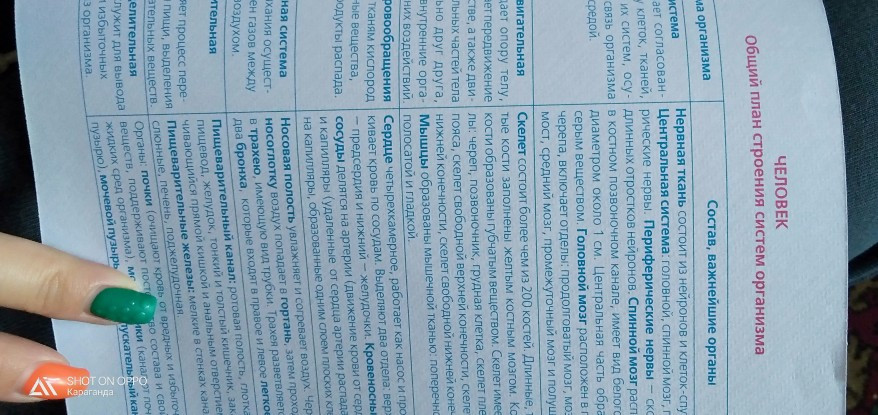 ЧЕЛОВЕК
Общий план строения систем организма
ма организма
Состав, важнейшие органы
истема
ает согласован-
у клеток, тканей,
их систем, осу-
связь организма
средой.
Нервная ткань состоит из нейронов и клеток-спу
Центральная система: головной, спинной мозг,
рические нервы. Периферические нервы – ск
длинных отростков нейронов. Спинной мозг расп
в костном позвоночном канале, имеет вид белого
диаметром около 1 см. Центральная часть обра
серым веществом. Головной мозг расположен в п
черепа, включает отделы: продолговатый мозг, моз
мост, средний мозг, промежуточный мозг и полуш
вигательная
щает опору телу,
ает передвижение
стве, а также дви-
льных частей тела
ьно друг друга,
внутренние орга-
них воздействий
Скелет состоит более чем из 200 костей. Длинные,
тые кости заполнены жёлтым костным мозгом. Ко
кости образованы губчатым веществом. Скелет имеет
лы: череп, позвоночник, грудная клетка, скелет пле
пояса, скелет свободной верхней конечности, скеле
нижней конечности, скелет свободной нижней конеч
Мышцы образованы мышечной тканью: поперечно
полосатой и гладкой.
ровообращения
тканям кислород
ные вещества,
родукты распада.
Сердце четырёхкамерное, работает как насос и про
кивает кровь по сосудам. Выделяют два отдела: верх
– предсердия и нижний – желудочки. Кровеносны
сосуды делятся на артерии (движение крови от серд
и капилляры (удаленные от сердца артерии распада
на капилляры, образованные одним слоем плоских кле
ная система
ыхания осущест-
ен газов между
воздухом.
Носовая полость увлажняет и согревает воздух. Чер
носоглотку воздух попадает в гортань, затем прохо
в трахею, имеющую вид трубки. Трахея разветвляетс
два бронха, которые входят в правое и левое легкое
ительная
яет процесс пере-
пищи, выделения
ательных веществ.
Пищеварительный канал: ротовая полость, глотка
пищевод, желудок, тонкий и толстый кишечник, зак
чивающийся прямой кишкой и анальным отверстием
Пищеварительные железы: мелкие в стенках кана
слюнные, печень, поджелудочная.
делительная
лужит для вывода
и избыточных
из организма.
Органы: почки (очищают кровь от вредных и избыточ
веществ, поддерживают пост во состава и свой
жидких сред организма), мо ики (канал от поч
пузырю), мочевой пузырь пускательный кан
SHOT ON OPPO
Караганда